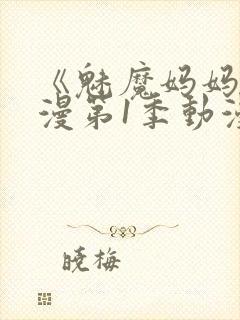 《魅魔妈妈
漫第1季動漫
晓梅